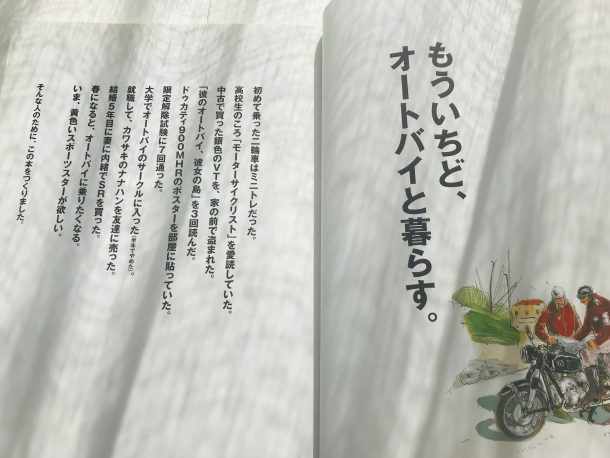 もういちど、
オートバイと暮らす。
初めて乗った二輪車はミニトレだった。
高校生のころ「モーターサイクリスト」を愛読していた。
中古で買った銀色のVTを、家の前で盗まれた。
「彼のオートバイ、彼女の島」を3回読んだ。
ドゥカティ900MHRのポスターを部屋に貼っていた。
限定解除試験に7回通った。
大学でオートバイのサークルに入った(半年でやめた)。
就職して、カワサキのナナハンを友達に売った。
結婚5年目に妻に内緒でSRを買った。
春になると、オートバイに乗りたくなる。
いま、黄色いスポーツスターが欲しい。
そんな人のために、この本をつくりました。